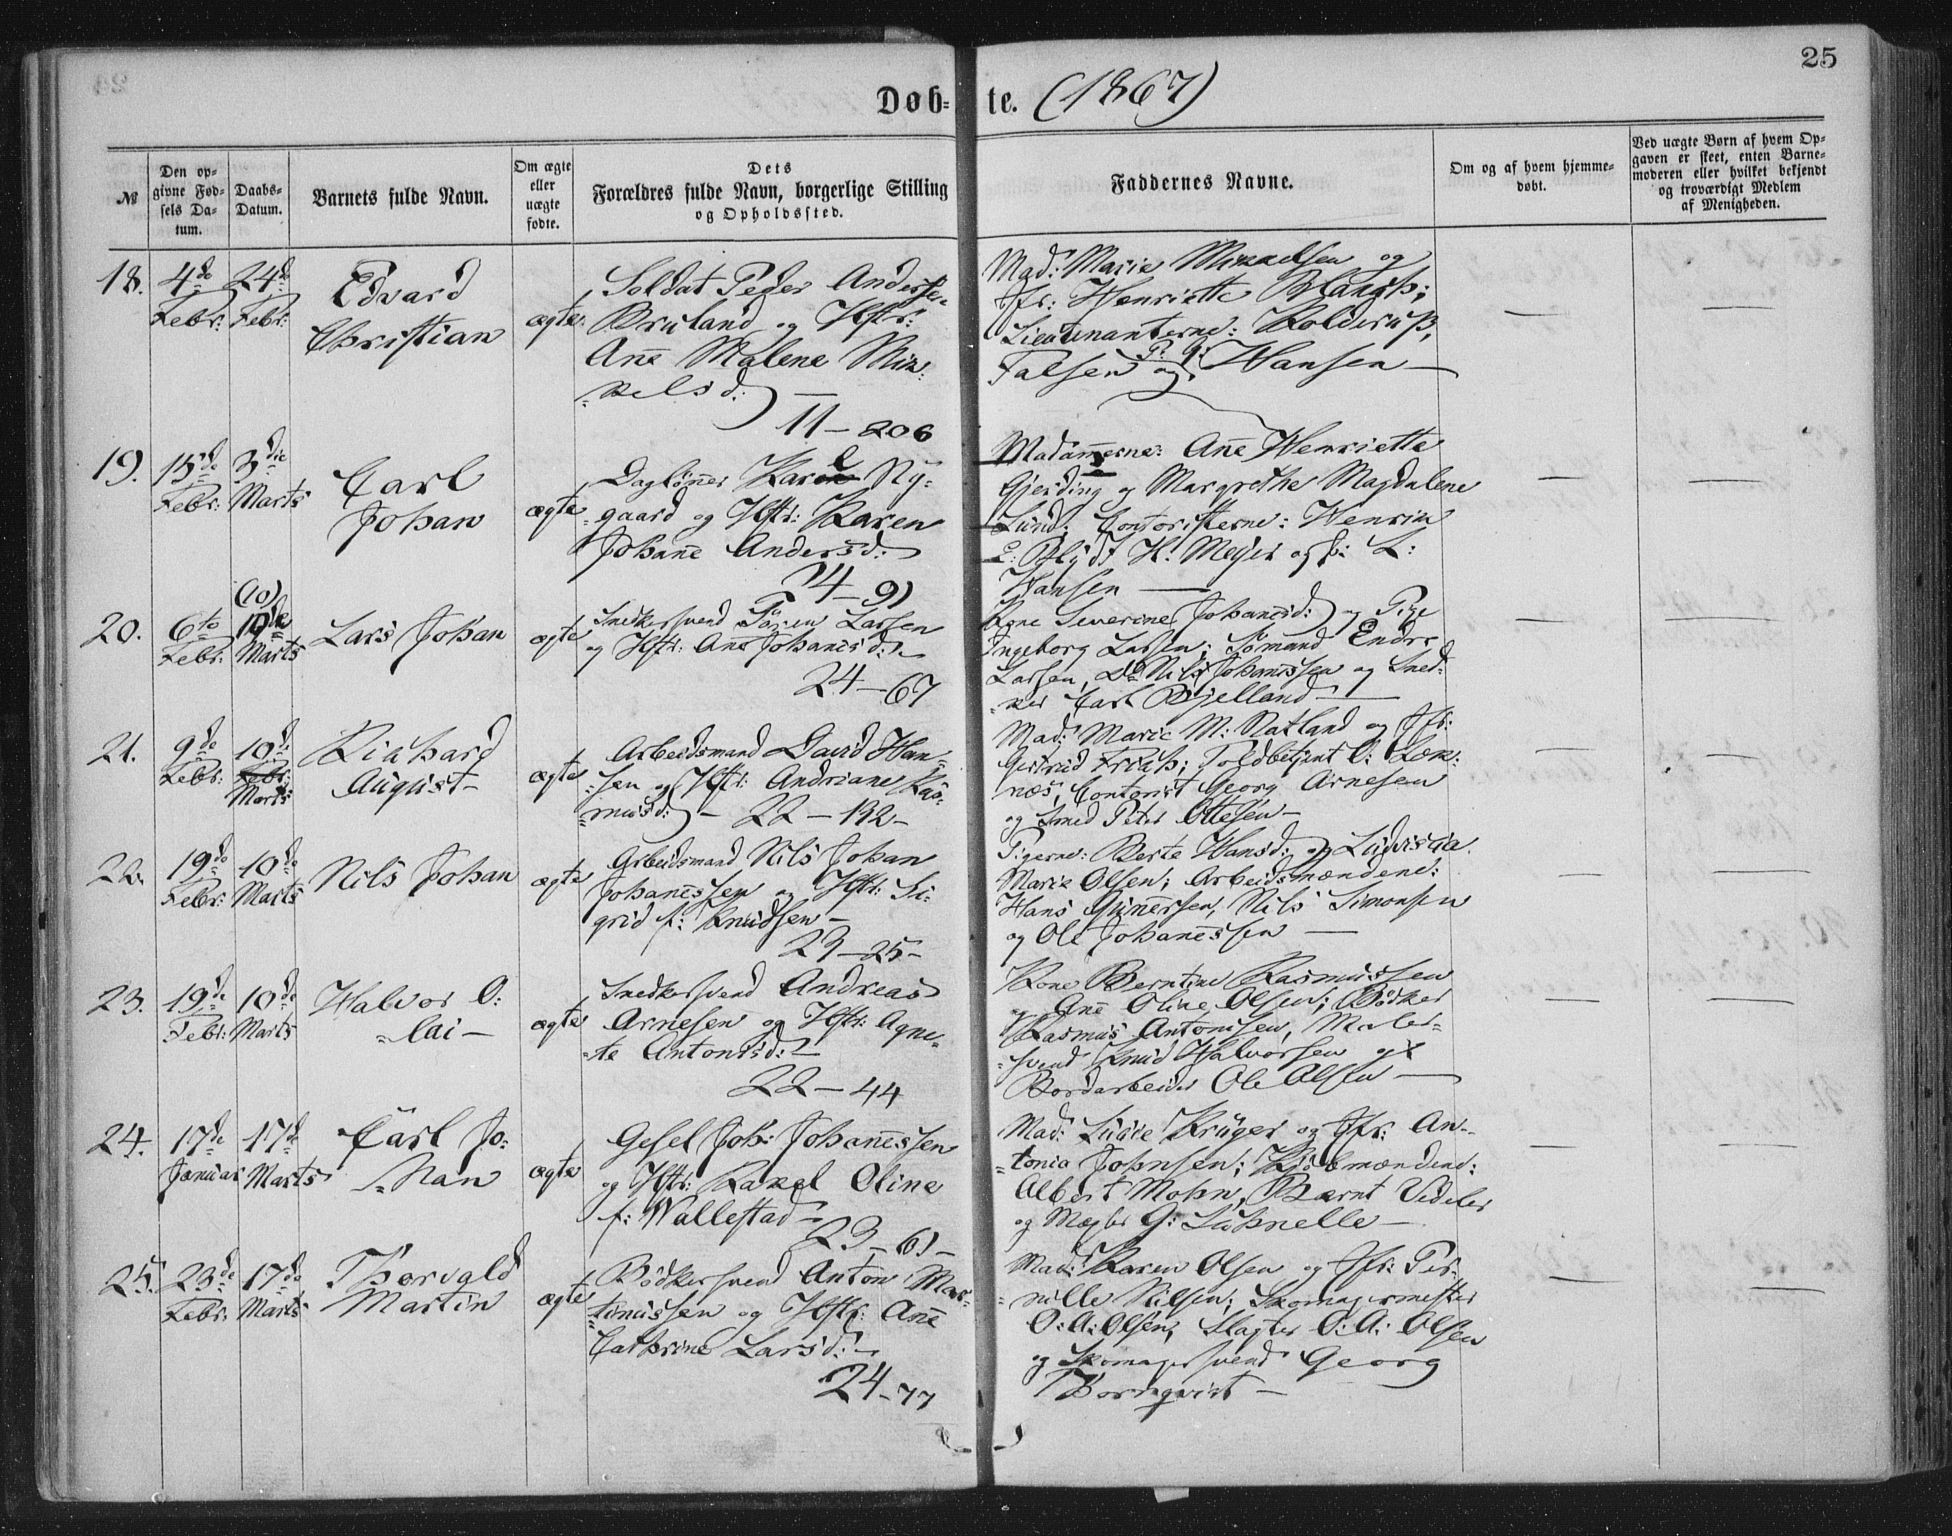 25
Døb= te. (1867)
№
Den op=
givne Fød=
sels Da=
tum.
Daabs=
Datum.
Barnets fulde Navn.
Om ægte
eller
uægte
fødte.
Dets
Forældres fulde Navn, borgerlige Stilling
og Opholdssted.
Faddernes Navne.
Om og af hvem hjemme=
døbt.
Ved uægte Børn af hvem Op=
gaven er skeet, enten Barne=
moderen eller hvilket bekjendt
og troværdigt Medlem
af Menigheden.
18.
4de
Febr:
24de
Febr:
Edvard
Christian
ægte
Soldat Peder Anderse
Bruland og Hstr:
Ane Malene Mik=
=kelsd:
11 — 206
Mad: Marie Mikkelsen og
Jfr: Henriette
Lieutenanterne: Kolderup,
Falsen og P. G: Hansen —
19.
15de
Febr:
3die
Marts
Carl
Johan
ægte
Daglønner Karl Ny=
=gaard og Hstr: Karen
Johane Andersd:
24 — 91
Madamerne: Ane Henriette
Gjerding og Margrethe Magdalene
Lund; Contoristerne: Henrik
Blydt, H. Meyer og L:
Hansen —
20.
6te
Febr:
(10)
10de
Marts
Lars Johan
ægte
Snedkersvend Sören Larsen
og Hstr: Ane Johanesd:
24 — 67
Kone Severine Johanesd: og Pige
Ingeborg Larsen; Sömand Endre
Larsen, Do Nils Johanessen og Sned=
=ker Carl Bjelland —
21.
9de
Febr:
10de
Febr:
Marts
Richard
August —
ægte
Arbeidsmand David Han=
=sen og Hstr: Andriane Ras=
=musd: — 22 — 192 —
Mad: Marie M: Natland og Jfr:
Gertrud Frich; Toldbetjent O: Løk=
næs, Contorist Georg Arnesen
og Smed Peter Ottesen —
22.
19de
Febr:
10de
Marts
Nils Johan
ægte
Arbeidsmand Nils Johan
Johanessen og Hstr: Si=
grid f: Knudsen —
23 — 25 —
Pigerne: Berte Hansd: og Ludvikka
Marie Olsen; Arbeidsmændene:
Hans Gunersen, Nils Simonsen
og Ole Johanessen —
23.
19de
Febr:
10de
Marts
Halvor O:
=lai —
ægte
Snedkersvend Andreas
Arnesen og Hstr: Agne=
=te Antonisd: —
22 — 44
Kone Berntine Rasmussen
og Ane Oline Olsen; Bödker
Rasmus Antonisen, Maler=
=svend Knud Halvorsen og
Bordarbeider Ole Olsen —
24.
17de
Januar
17de
Marts
Carl Jo=
=han
ægte
Gesel Joh: Johanessen
og Hstr: Rakel Oline
f: Wallestad —
23 — 61 —
Mad: Lucie Krüger og Jfr: An=
=tonia Johnsen; Kjöbmændene:
Albert Mohn, Bernt Vedeler
og Mægler G: Kühnelle —
25.
23de
Febr:
17de
Marts
Thorvald
Martin
ægte
Bödkersvend Anton Mar=
=tinussen og Hstr: Ane
Cathrine Larsd: —
24 — 77
Mad: Karen Olsen og Jfr: Per=
=nille Nilsen; Skomagermester
O: A: Olsen, Slagter O: A: Olsen
og Skomagersvend Georg
Thornqvist —